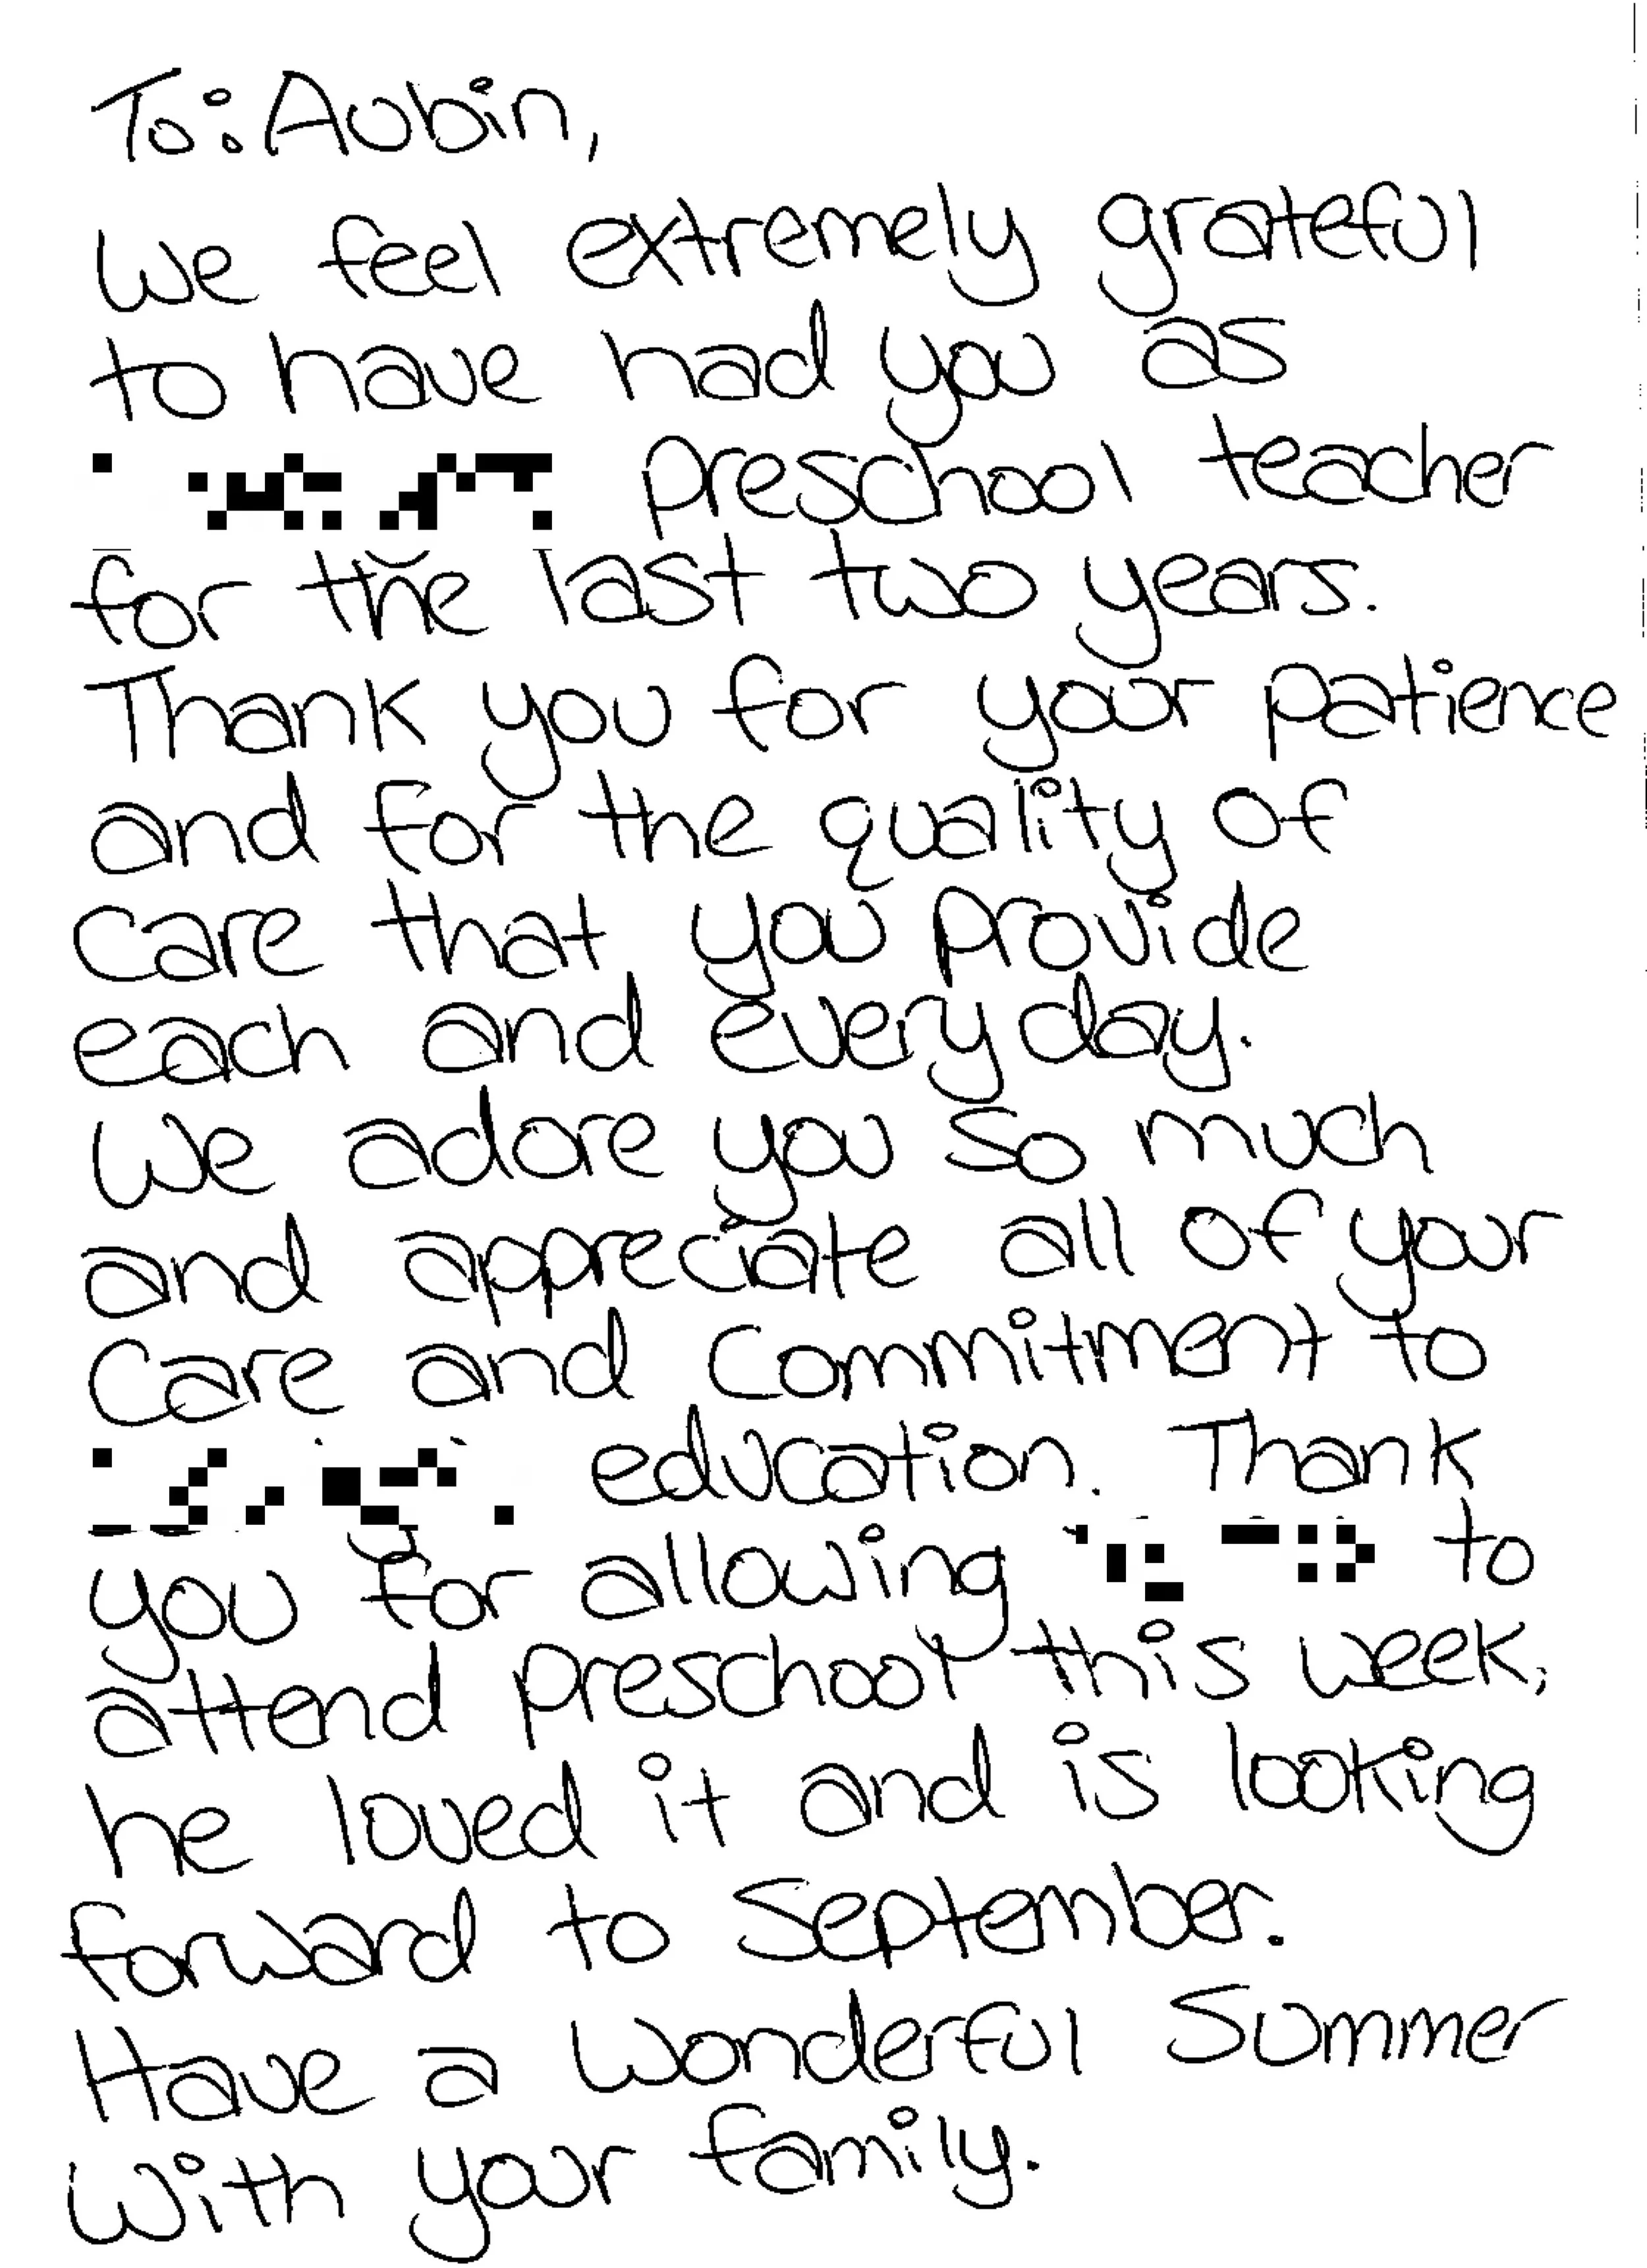 To: Aubin,
We feel extremely grateful
to have had you as
preschool teacher
for the last two years.
Thank you for your patience
and for the quality of
care that you provide
each and every day.
We adore you so much
and appreciate all of your
care and commitment to
education. Thank
you for allowing to
attend preschool this week,
he loved it and is looking
forward to September.
Have a wonderful Summer
with your family.